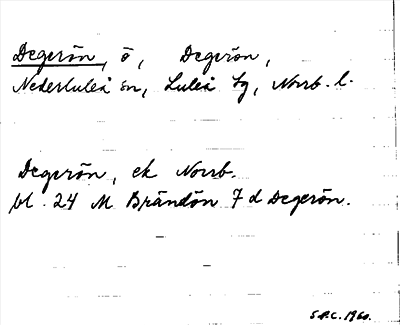 Degerön, ö, Degerön,
Nederluleå sn, Luleå tg, Norrb. l.
Degerön, ek Norrb.
bl. 24 M Brändön 7 d Degerön.
S.P.C. 1960.